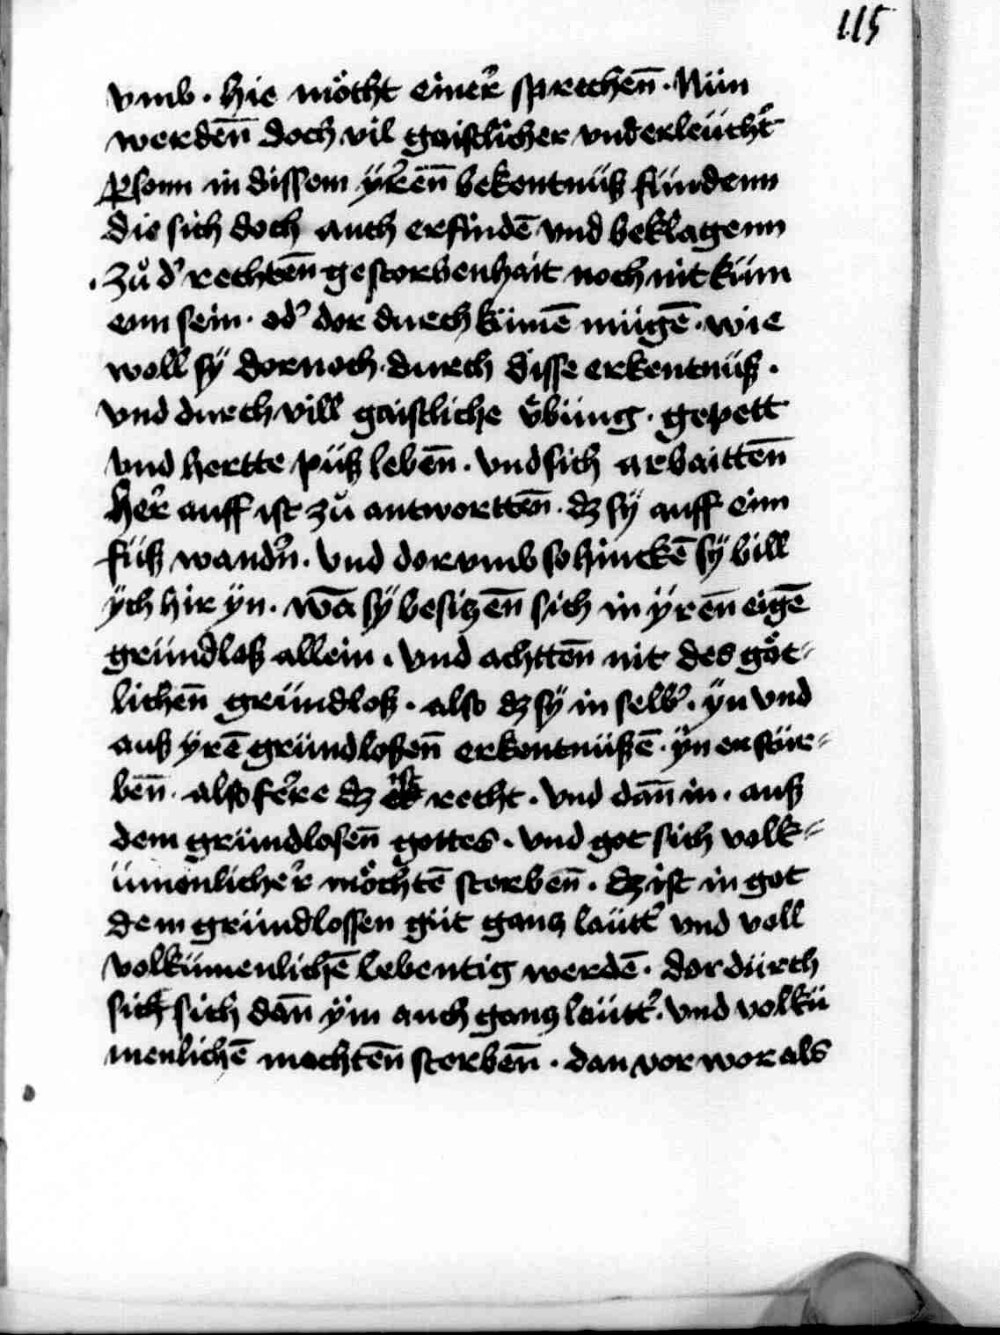 115
vmb · hie möcht einer sprechen̄ · Nün
werden̄ doch vil gaistlicher vnd erleücht'
ꝑsonn in dissem ÿren̄ bekentnüß fündenn
die sich doch auch erfindē vnd beklagenn
· Zů d' rechten̄ gestorbenhait noch nit küm
enn sein · od' dor durch kümē mügē · wie
woll sÿ dornoch · durch disse erkentnüß ·
vnd durch vill gaistliche v̈büng · gepett
vnd hertte püß leben̄ · vnd sich arbaitten̄
her auff ist zů antwortten̄ · dz sÿ auff eim
füß wand'n̄ · vnd dor vmb so hinckē sÿ bill
ÿch hir ÿn · wā sÿ besitzen̄ sich in ÿren̄ eigē
gründloß allein · vnd achtten̄ nit des göt⸗
lichen̄ gründloß · also dz sÿ in selb' · ÿn vnd
auß ÿrē gründloßen̄ erkentnüßē · ÿn er stür⸗
ben̄ · also ferre dz recht · vnd dan̄ in · auß
dem gründlosen̄ gottes · vnd got sich volk⸗
ümenlicher möchtē sterben̄ · dz ist in got
dem gründlossen güt gantz laütt' vnd voll
volkümenlichē lebentig werdē · dor dürch
sich sich dan̄ ÿm auch gantz laütt' · vnd volkü
menlichē mechten̄ sterben̄ · dan vor wor als